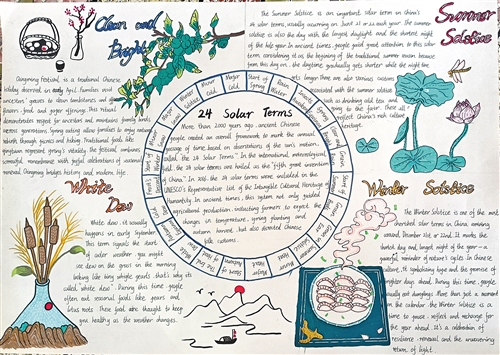 Clean and
Bright
Qingming Festival is a traditional Chinese
holiday observed in early April. Families visit
ancestors' graves to clean tombstones and
flowers, food, and paper offerings. This ritual
demonstrates respect for ancestors and maintains family bonds
across generations. Spring outing allow families to enjoy nature's
rebirth through picnics and hiking. Traditional foods like
represent spring's vitality. The festival combines
remembrance with joyful celebrations of seasonal
renewal. Qingming bridges history and modern life.
Summer
Solstice
The Summer Solstice is an important solar term in China's
24 solar terms, usually occurring on June 21 or 22 each year. The summer
solstice is also the day with the longest daylight and the shortest night
of the year. In ancient times, people paid great attention to this solar
term, considering it as the beginning of the traditional summer season because
from this day on, the daytime gradually gets shorter while the night
gets longer. There are also various customs
associated with the summer solstice
such as drinking cold tea and
going to the fair. These all
reflect China's rich culture
heritage.
24 Solar Terms
More than 2000 years ago, ancient Chinese
people created an overall framework to mark the annual
passage of time based on observations of the sun's motion,
called "the 24 Solar Terms". In the international meteorological
field, the 24 solar terms are hailed as "the fifth great invention
of China". In 2016, the 24 solar terms were included on the
UNESCO's Representative List of the Intangible Cultural Heritage of
Humanity. In ancient times, this system not only guided
agricultural production, instructing farmers to expect the
changes in temperature, spring planting and
autumn harvest, but also denoted Chinese
folk customs.
Winter Solstice
Minor Cold
Major Cold
Start of Spring
Rain Water
White
Dew
White dew, it usually
happens in early September.
This term signals the start
of cooler weather. You might
see dew on the grass in the morning
looking like tiny white pearls, that's why its
called "white dew". During this time, people
often eat seasonal foods like pears and
lotus roots. These food are thought to keep
you healthy as the weather changes.
Winter Solstice
The Winter Solstice is one of the most
cherished solar terms in China, arriving
around December 21 or 22nd. It marks the
shortest day and longest night of the year - a
powerful reminder of nature's cycles. In Chinese
culture, it symbolizing hope and the promise of
brighter days ahead. During this time, people
usually eat dumplings. More than just a moment
on the calendar, the Winter Solstice is a
time to pause, reflect and recharge for
the year ahead. It's a celebration of
resilience, renewal and the unwavering
return of light.